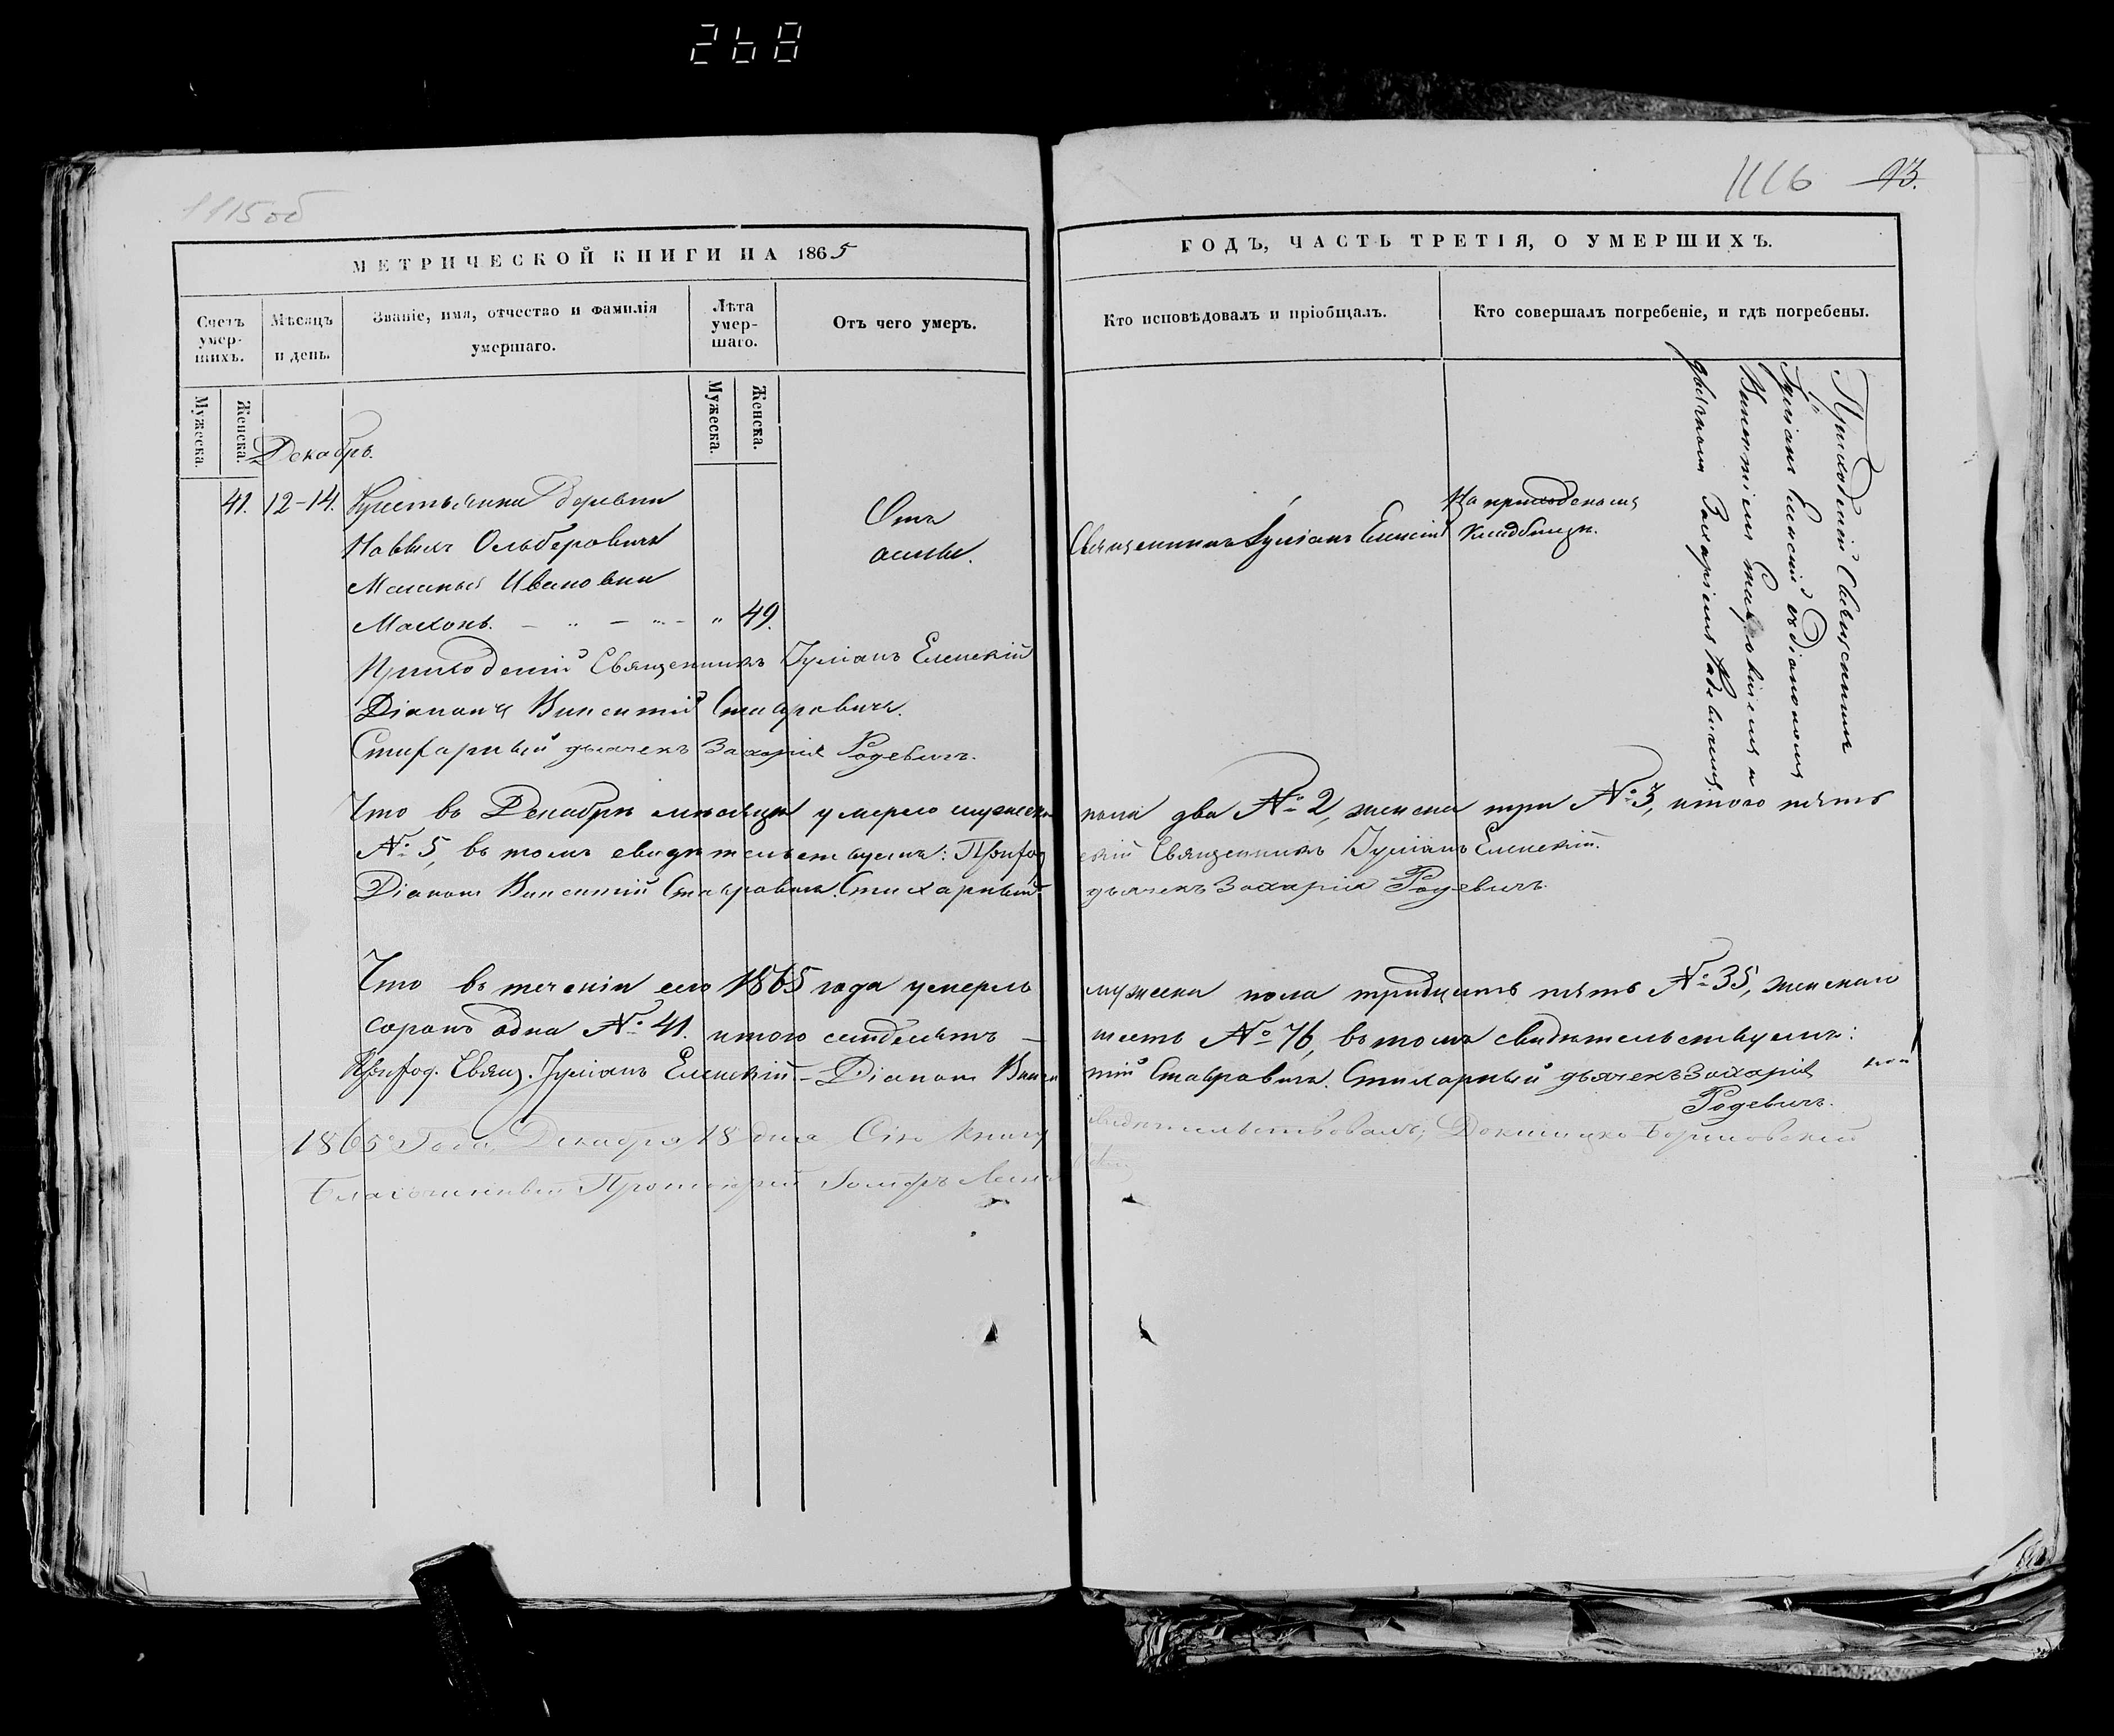 268
1115об
МЕТРИЧЕСКОЙ КНИГИ НА 1865
Счетъ умер-шихъ.
Мѣсяцъ и день.
Званіе, имя, отчество и фамилія умершаго.
Лѣта умер-шаго.
Отъ чего умеръ.
Мужеска.
Женска.
Мужеска.
Женска.
Декабрь.
41. 12-14. Крестьянка деревни
Ольберовичъ
Ивановна
Махонь. „ 49.
Отъ
Приходскій Священникъ Іуліанъ Еленскій
Діаконъ Викентій Ставровичъ.
Стихарный дьячекъ Захарія Родевичъ.
Что въ Декабрѣ мѣсяцѣ умерло мужеска
№ 5, въ томъ свидѣтельствуемъ: Приход
Діаконъ Викентій Ставровичъ. Стихарный
Что въ теченіи сего 1865 года умерло
сорокъ одна № 41. итого семдесятъ —
Приход. Свящ. Іуліанъ Еленскій – Діаконъ Викен
1865 Года, Декабря 18 дня Сію Книгу
Благочинный Протоіерей
1116 93.
ГОДЪ, ЧАСТЬ ТРЕТІЯ, О УМЕРШИХЪ.
Кто исповѣдовалъ и пріобщалъ.
Кто совершалъ погребеніе, и гдѣ погребены.
Священникъ Іуліанъ Еленскій
На приходскомъ
кладбищѣ.
Приходскій Священникъ
Іуліанъ Еленскій съ Діакономъ
Викентіемъ Ставровичемъ и
дьячкомъ Захаріемъ Родевичемъ
пола два № 2, женска три № 3, итого пять
скій Священникъ Іуліанъ Еленскій.
дьячекъ Захарія Родевичъ.
мужеска пола тридцать пять № 35, женскаго
шесть № 76, въ томъ свидѣтельствуемъ:
тій Ставровичъ. Стихарный дьячекъ Захарія
Родевичъ.
свидѣтельствовалъ; Докшицко-Борисовскій